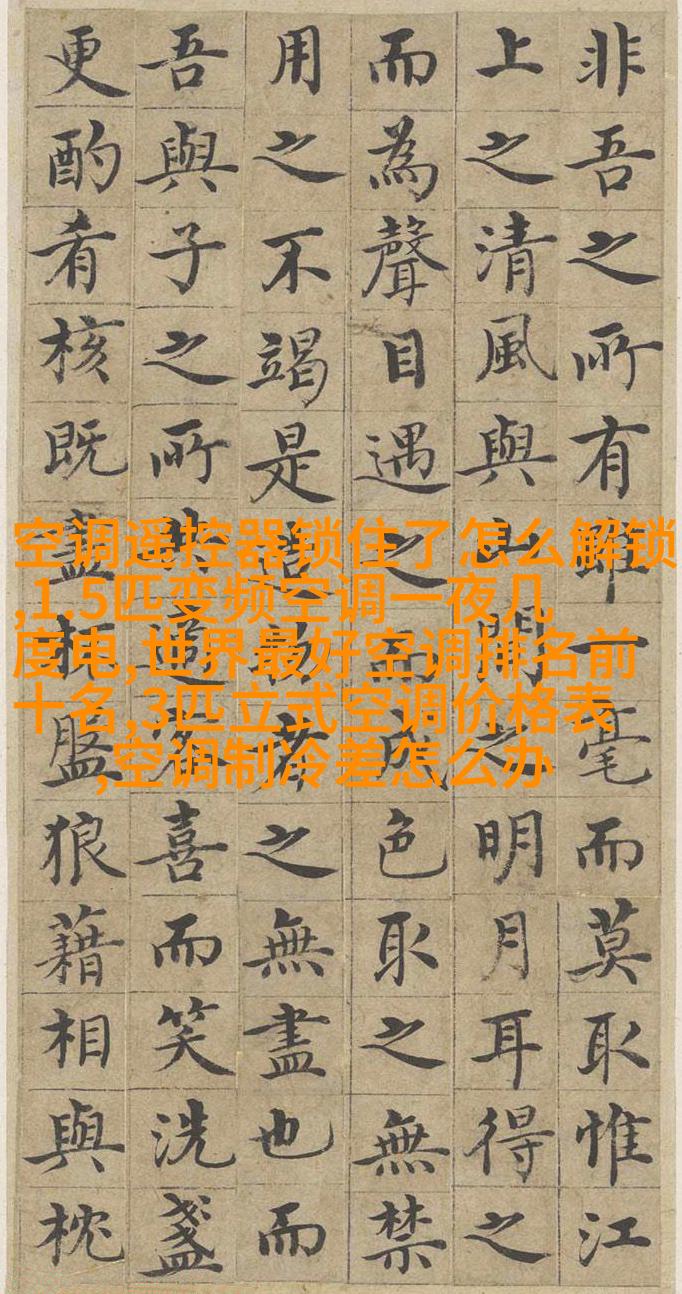 非吾之所有雖一毫而莫取惟江
上之清風與山間之明月耳得之
而為聲目遇之而成色取之無禁
用之不竭是造物者之無盡也而
吾與子之所共適客喜而笑洗盞
更酌肴核既盡杯盤狼藉相與枕
空调遥控器锁住了怎么解锁
,1.5匹变频空调一夜几
度电,世界最好空调排名前
十名,3匹立式空调价格表
,空调制冷差怎么办